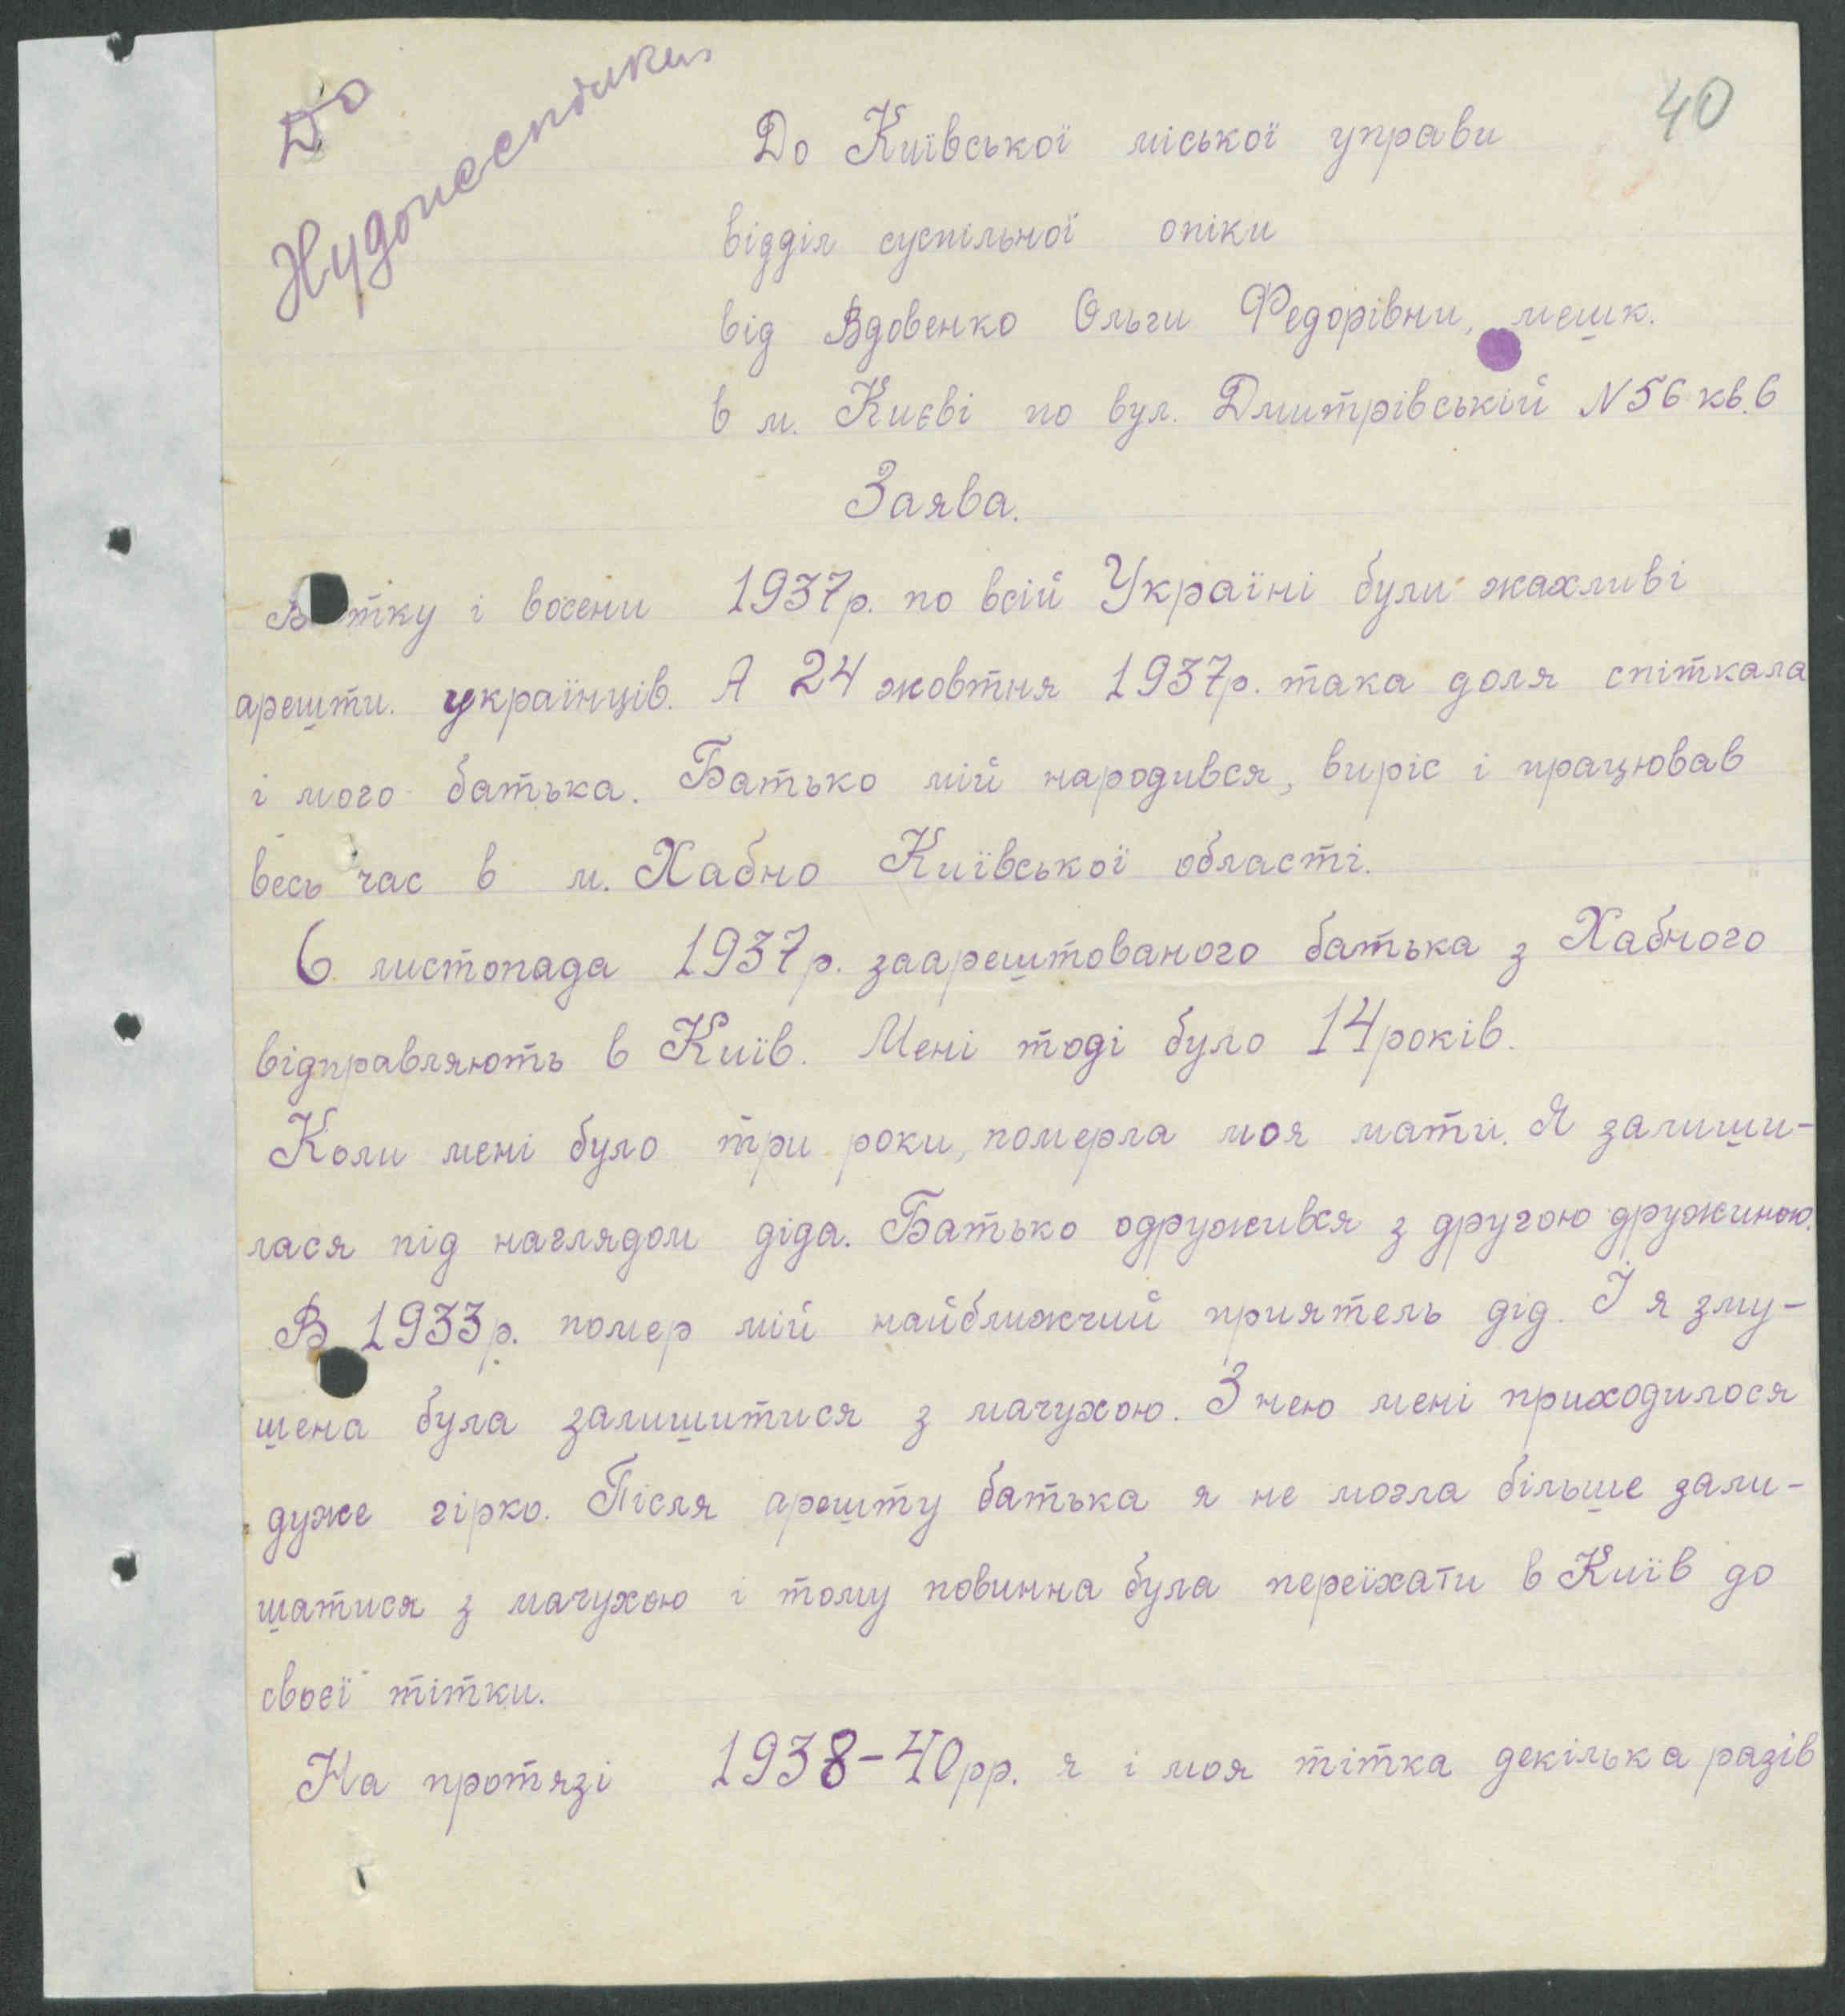 До
40
До Київської міської управи
відділ суспільної опіки
від Вдовенко Ольги Федорівни, мешк.
в м. Києві по вул. Дмитрівській N 56 кв. 6
Заява.
і восени 1937р. по всій Україні були жахливі
арешти. українців. А 24 жовтня 1937р. така доля спіткала
і мого батька. Батько мій народився, виріс і працював
весь час в м. Хабно Київської області.
6 листопада 1937р. заарештованого батька з Хабного
відправляють в Київ. Мені тоді було 14 років.
Коли мені було три роки, померла моя мати. Я залиши-
лася під наглядом діда. Батько одружився з другою дружиною.
В 1933р. помер мій найближчий приятель дід. І я зму-
шена була залишитися з мачухою. З нею мені приходилося
дуже гірко. Після арешту батька я не могла більше зали-
шатися з мачухою і тому повинна була переїхати в Київ до
своєї тітки.
На протязі 1938-40рр. я і моя тітка декілька разів